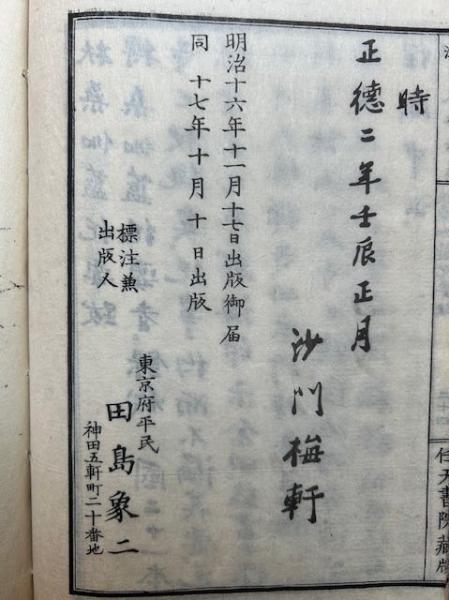 時
正德二年壬辰正月
沙門梅軒
明治十六年十一月十七日出版御届
同 十七年十月十日出版
標注兼
出版人
東京府平民
田島象二
神田五軒町二十番地
任天書院藏版